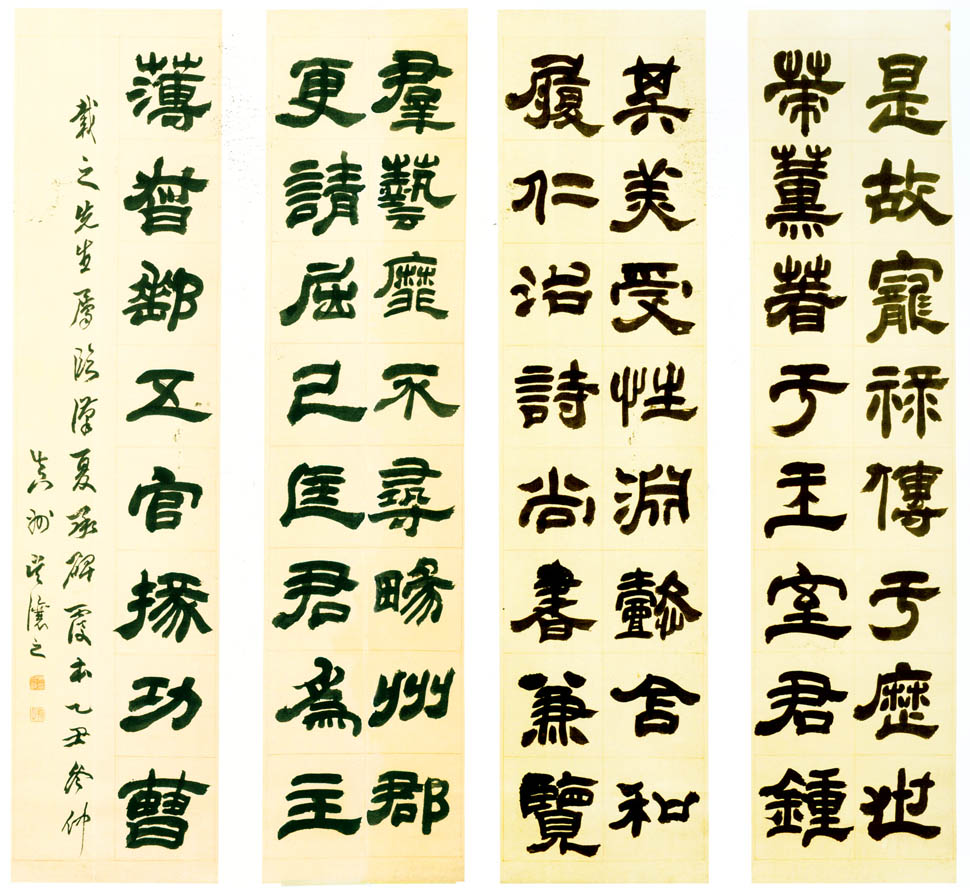 是故寵祿傳于歷世
策薰著于王室君鍾
其美受性淵懿含和
履仁治詩尚書兼覽
羣藝靡不尋畼州郡
更請屈己匡君為主
薄督郵五官掾功曹
戴之先生屬臨漢夏承碑覆本乙丑冬仲
真州吳讓之